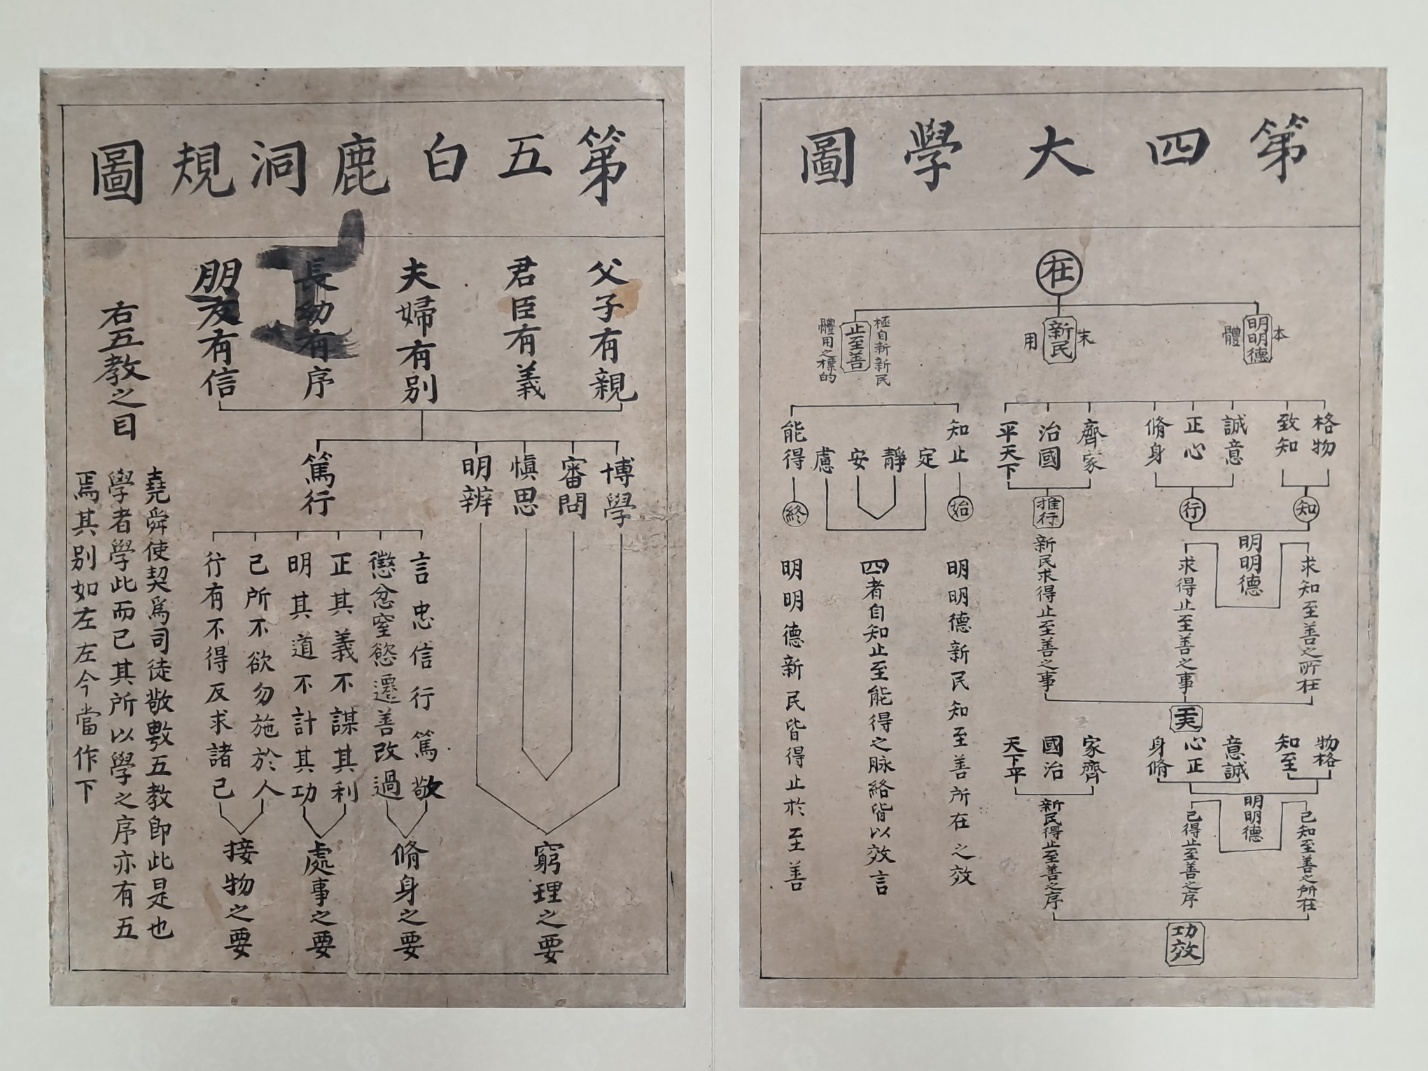 第四大學圖
在
本
明明德
體
末
新民
用
極自新新民
止至善
體用之標的
格物
致知
誠意
正心
脩身
齊家
治國
平天下
知止
定
靜
安
慮
能得
知
行
推行
始
終
明明德
求知至善之所在
求得止至善之事
新民求得止至善之事
明明德新民知至善所在之效
四者自知止至能得之脉絡皆以效言
明明德新民皆得止於至善
物格
知至
意誠
心正
身脩
家齊
國治
天下平
明明德
已知至善之所在
已得止至善之序
新民得止至善之序
功效
第五白鹿洞規圖
父子有親
君臣有義
夫婦有別
長幼有序
朋友有信
右五教之目
堯舜使契爲司徒敬敷五教卽此是也
學者學此而已其所以學之序亦有五
焉其別如左 左今當作下
博學
審問
愼思
明辨
篤行
言忠信行篤敬
懲忿窒慾遷善改過
正其義不謀其利
明其道不計其功
己所不欲勿施於人
行有不得反求諸己
窮理之要
脩身之要
處事之要
接物之要